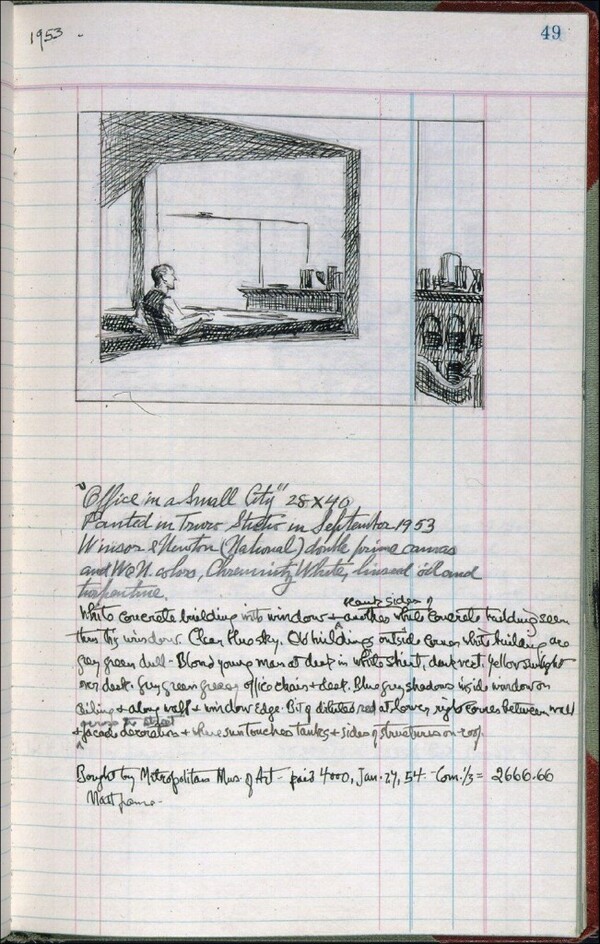 1953 -
49
"Office in a Small City" 28 x 40
Painted in Truro Studio in September 1953
Winsor & Newton (National) double prime canvas
and W & N. colors, Chremnitz White, linseed oil and
turpentine.
sides of
White concrete building into window + another white concrete building seen
thru this window. Clear blue sky. Old buildings outside corner white building are
grey green dull - Blond young man at desk in white shirt, dark vest. yellow sunlight
over desk. Grey green office chair + desk. Blue grey shadows inside window on
ceiling + along wall + window edge. Bit of diluted red at lower right corner between wall
across the street
+ facade decoration + where sun touches tanks + sides of structures on roof.
Bought by Metropolitan Mus. of Art - paid 4000, Jan. 27, 54. - Com. 1/3 = 2666.66